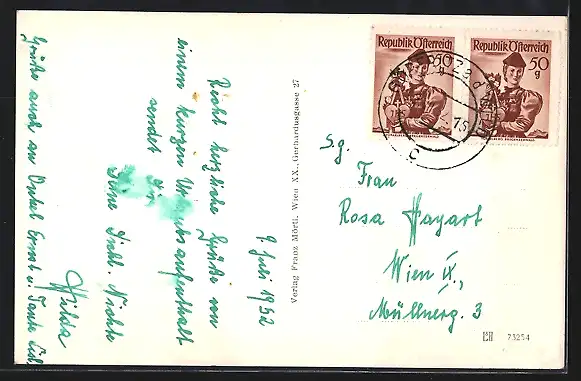 9. Juli 1952
Recht herzliche Grüße von
einem kurzen Urlaubsaufenthalt
sendet Dir
Deine Dichl. Nichte
Hilda
Grüße auch an Onkel Ernst u. Tante
Verlag Franz Mörtl, Wien XX., Gerhardusgasse 27
Republik Österreich
50
g
Republik Österreich
50
g
S.g.
Frau
Rosa Hayart
Wien IX.,
Müllnerg. 3
73254